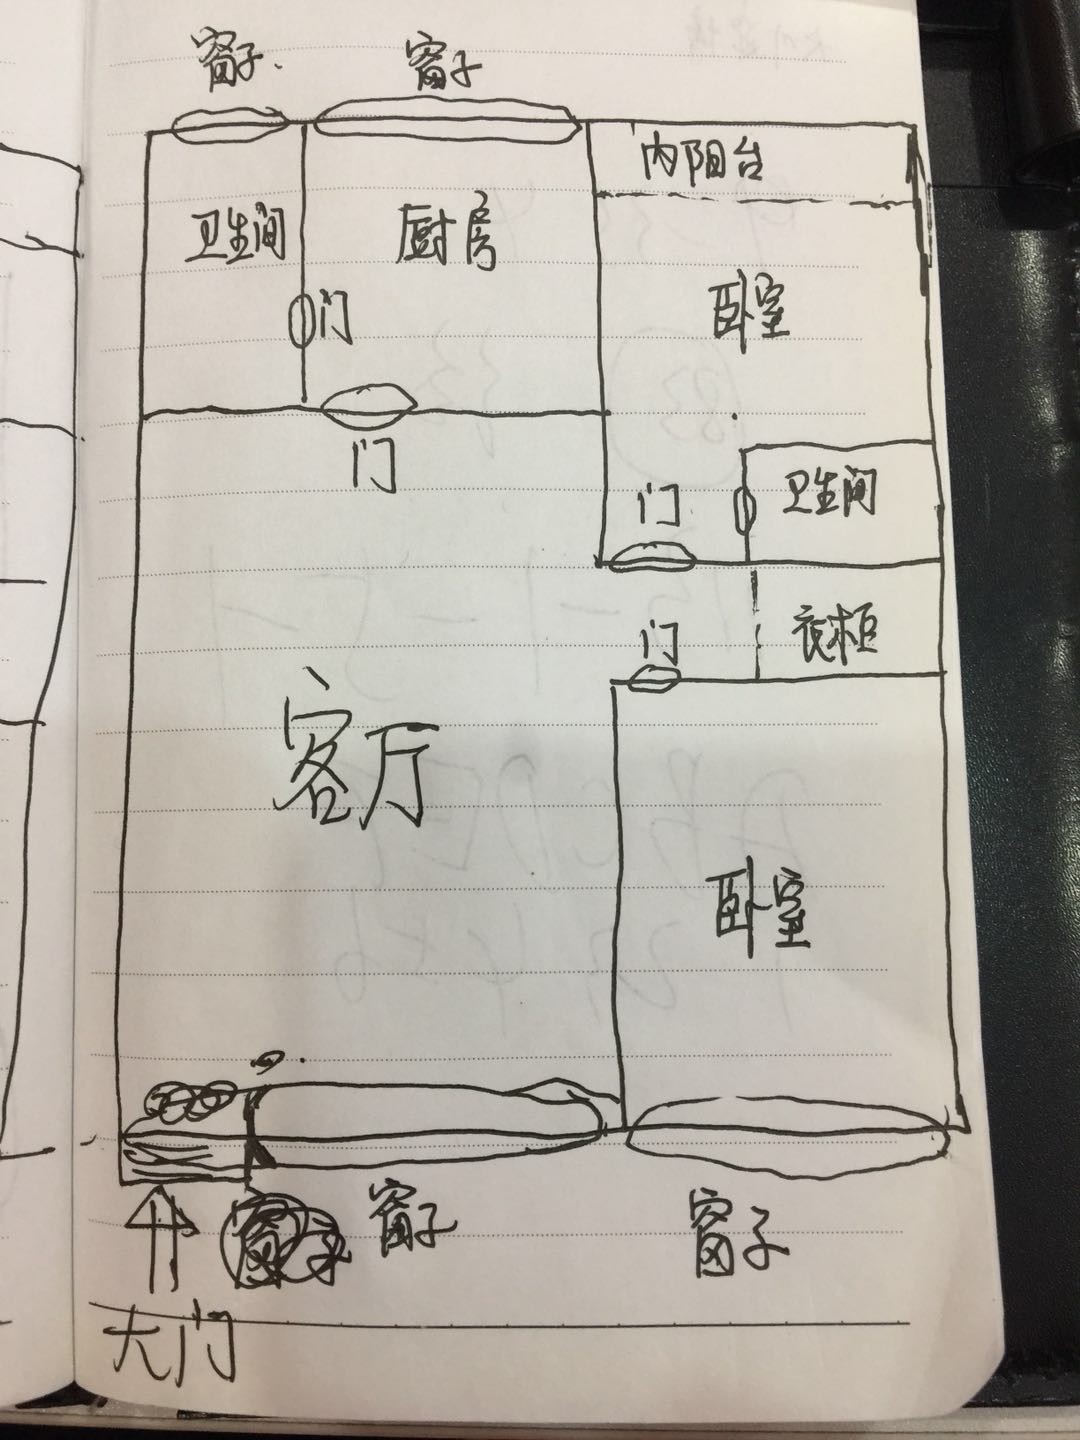 窗子
窗子
内阳台
卫生间
厨房
卧室
门
门
门
卫生间
门
衣柜
客厅
卧室
窗子
窗子
大门